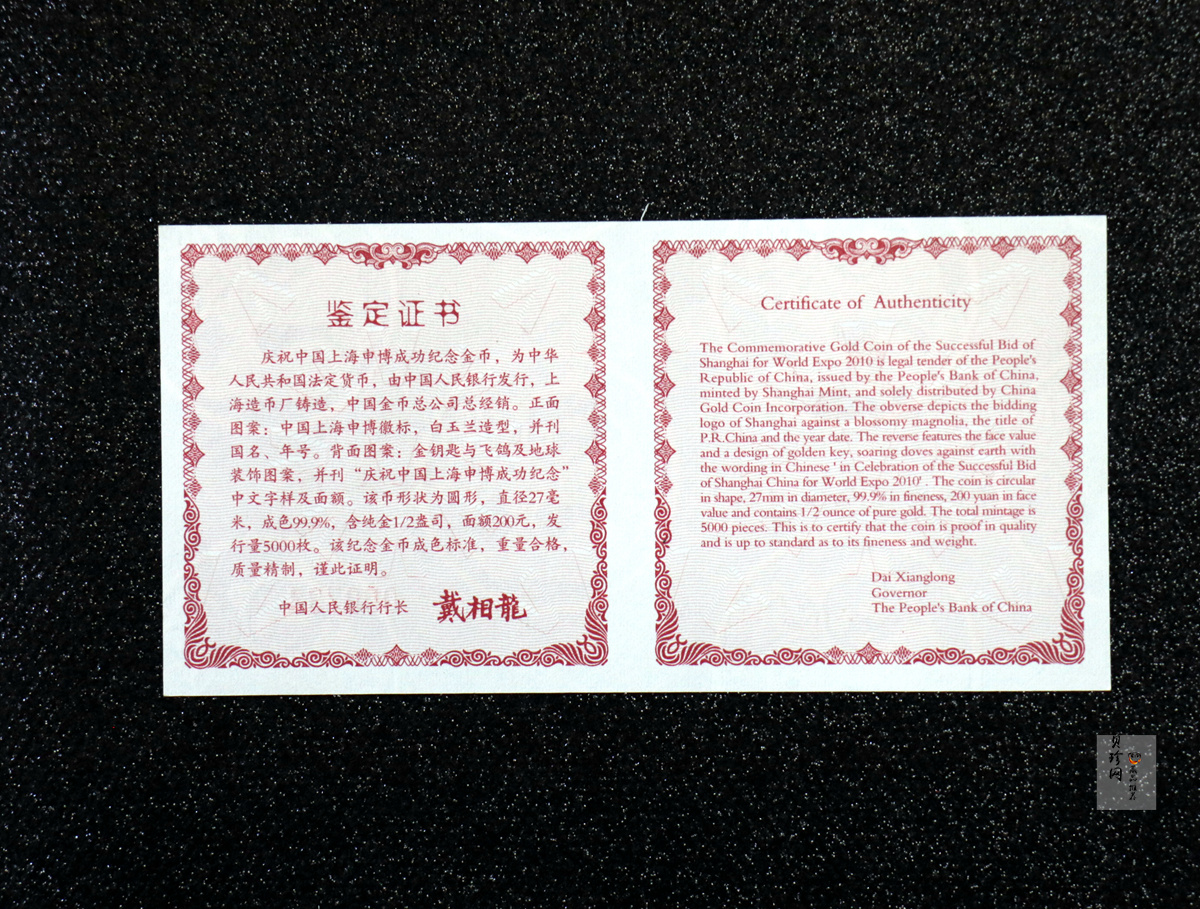 鉴定证书
庆祝中国上海申博成功纪念金币，为中华
人民共和国法定货币，由中国人民银行发行，上
海造币厂铸造，中国金币总公司总经销。正面
图案：中国上海申博徽标，白玉兰造型，并刊
国名、年号。背面图案：金钥匙与飞鸽及地球
装饰图案，并刊“庆祝中国上海申博成功纪念”
中文字样及面额。该币形状为圆形，直径27毫
米，成色99.9%，含纯金1/2盎司，面额200元，发
行量5000枚。该纪念金币成色标准，重量合格，
质量精制，谨此证明。
中国人民银行行长 戴相龍
Certificate of Authenticity
The Commemorative Gold Coin of the Successful Bid of
Shanghai for World Expo 2010 is legal tender of the People's
Republic of China, issued by the People's Bank of China,
minted by Shanghai Mint, and solely distributed by China
Gold Coin Incorporation. The obverse depicts the bidding
logo of Shanghai against a blossomy magnolia, the title of
P.R.China and the year date. The reverse features the face value
and a design of golden key, soaring doves against earth with
the wording in Chinese ' in Celebration of the Successful Bid
of Shanghai China for World Expo 2010' . The coin is circular
in shape, 27mm in diameter, 99.9% in fineness, 200 yuan in face
value and contains 1/2 ounce of pure gold. The total mintage is
5000 pieces. This is to certify that the coin is proof in quality
and is up to standard as to its fineness and weight.
Dai Xianglong
Governor
The People's Bank of China
珍网